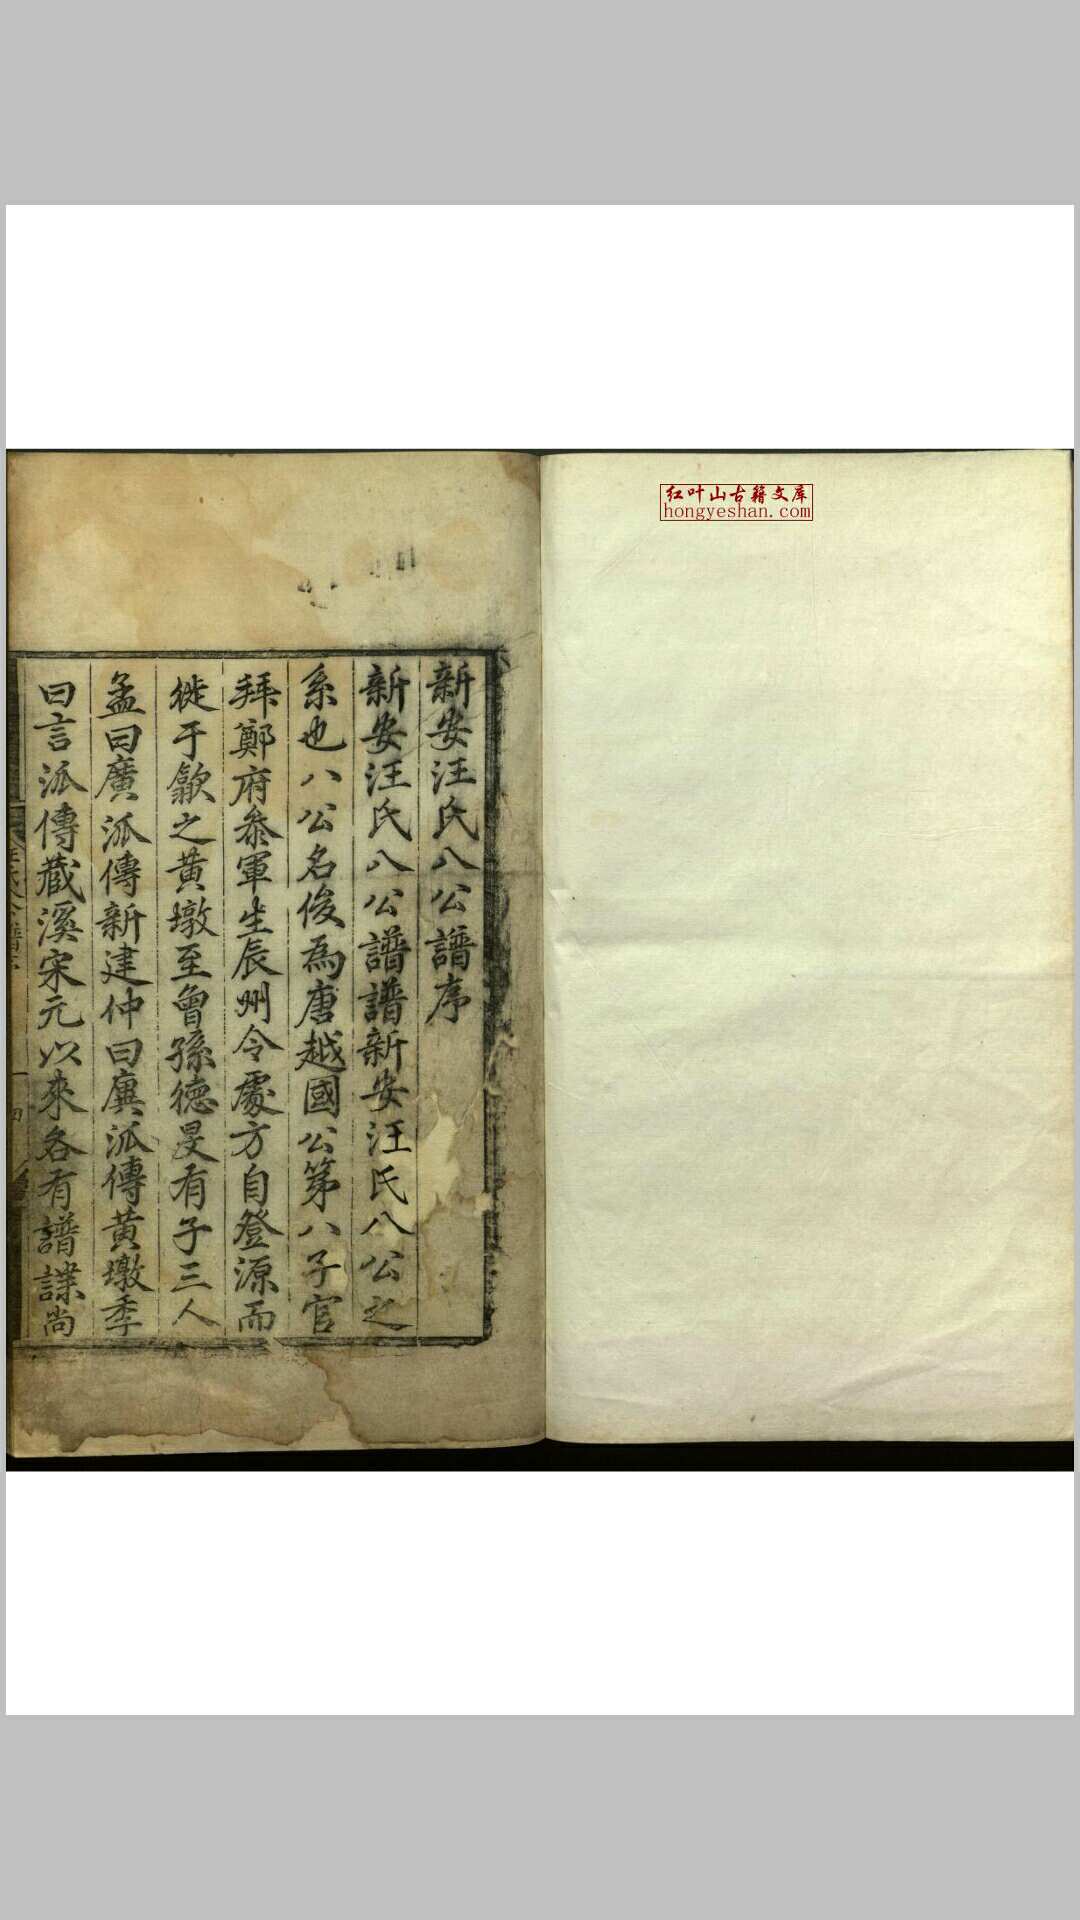 红叶山古籍文库
hongyeshan.com
新安汪氏八公譜序
新安汪氏八公譜譜新安汪氏八公之
系也八公名俊為唐越國公第八子官
拜鄭府叅軍生辰州令處方自登源而
徙于歙之黃墩至曾孫德旻有子三人
孟曰廣派傳新建仲曰廙派傳黃墩季
曰言派傳藏溪宋元以來各有譜諜尚